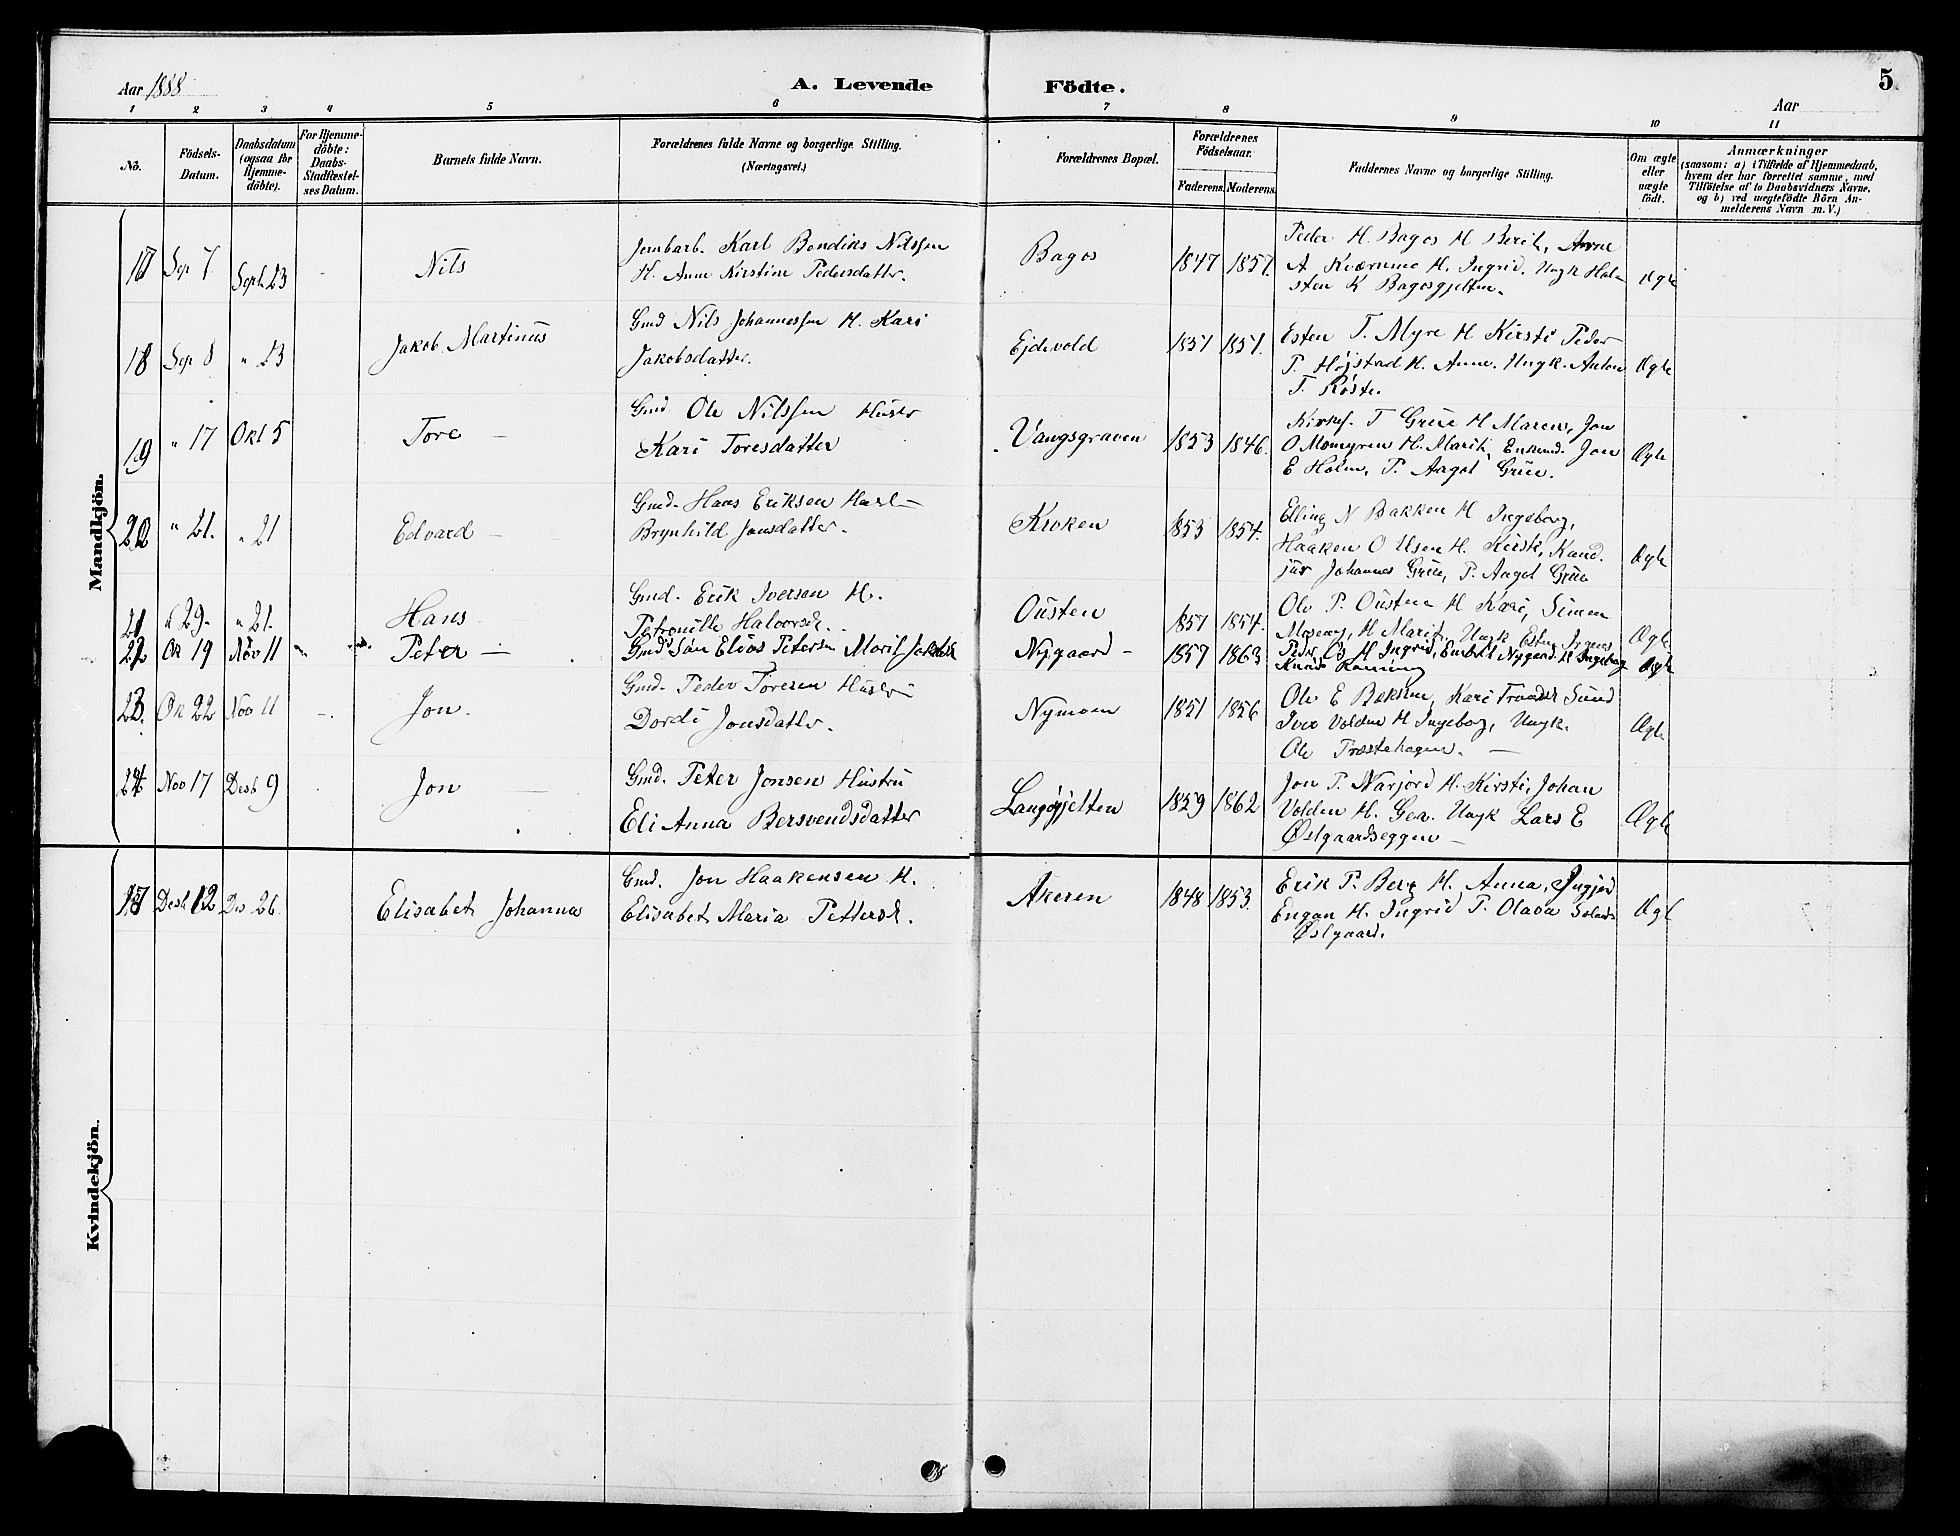 Aar 1888
A. Levende Födte.
5
Aar
1 2 3 4 5 6 7 8 9 10 11
No.
Födsels-Datum.
Daabsdatum (ogsaa for Hjemme-döbte).
For Hjemme-döbte: Daabs-Stadfæstel-ses Datum.
Barnets fulde Navn.
Forældrenes fulde Navne og borgerlige Stilling.
(Næringsvei.)
Forældrenes Bopæl.
Forældrenes Födselsaar.
Faderens. Moderens.
Faddernes Navne og borgerlige Stilling.
Om ægte eller uægte födt.
Anmærkninger
(saasom: a) i Tilfælde af Hjemmedaab,
hvem der har forrettet samme, med
Tilföielse af to Daabsvidners Navne,
og b) ved uægtefödte Börn An-
melderens Navn m. V.)
Mandkjön.
17 Sep 7 Sept. 23 - Nils
Jernbarb. Karl Bendiks Nilssen
H. Anne Kirstine Pedersdatter.
Bagos 1847 1857.
Peder H. Bagos H Berit, Arne
A Kværnmo H. Ingrid. Ungk Hal-
sten K Bagosgjelten.
Ægte
18 Sep 8 " 23 Jakob Martinus
Gmd Nils Johannessen H. Kari
Jakobsdatter.
Ejdsvold 1851 1851.
Esten T. Myre H Kirsti Peder
P. Højstad H. Anne. Ungk. Anton
T. Røste.
Ægte
19 " 17 Okt 5 Tore -
Gmd Ole Nilssen Hustr
Kari Toresdatter
Vangsgraven 1853 1846.
Kirkes. T Grue H Maren, Jon
O Momyren H. Marit, Enkemd. Jon
E Holm, P. Aagot Grue.
Ægte
20 " 21. " 21 Edvard -
Gmd. Hans Eriksen Hust -
Brynhild Jonsdatter.
Kroken 1853 1854.
Elling N Bakken H Ingeborg,
Haaken O Usen H. Kirsti, Kand.
jur Johannes Grue, P. Aagot Grue
Ægte
21 " 29. " 21. Hans
Gmd. Erik Iversen H.
Petronille Halvorsd. -
Ousten 1851 1854.
Ole P. Ousten H Kari, Simen
Moseng, H Marit, Ungk Esten
Ægte
22 Ok 19 Nov 11 Peter -
Gmd Søn Elias Petersen Marit Jakobsd
Nygaard - 1857 1863
Peder H Ingrid, Embret Nygaard H Ingeborg
Knut Rønning
Ægte
23. Ok 22 Nov 11 - Jon.
Gmd. Peder Toresen Hustru
Dordi Jonsdatter.
Nymoen 1851 1856
Ole E Bakken, Kari Trondsd Sund
Iver Volden H Ingeborg, Ungk.
Ole Træstehagen. -
Ægte
24 Nov 17 Desb 9 Jon
Gmd. Peter Jonsen Hustru
Eli Anna Bersvendsdatter
Langøgjelten 1859 1862
Jon P. Narjord H. Kirsti, Johan
Volden H. Gea. Ungk Lars E
Østgaardseggen -
Ægte
Kvindekjön.
17 Desb 12 Des 26. Elisabet Johanna
Gmd. Jon Haakensen H.
Elisabet Maria Pettersd.
Akeren 1848 1853.
Erik P. Berg H. Anna, Ingjer
Engan H. Ingrid P. Olava
Østgaard.
Ægte